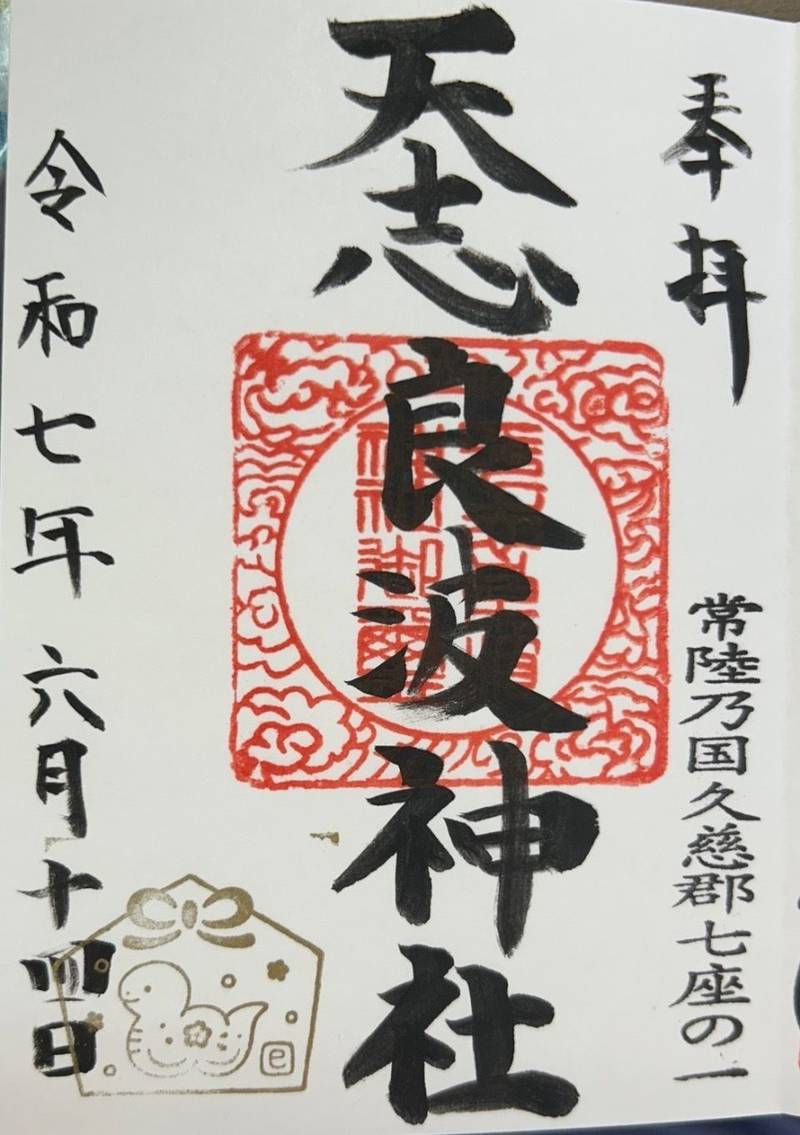 奉拝
常陸乃国久慈郡七座の一
天志良波神社
令和七年六月十四日